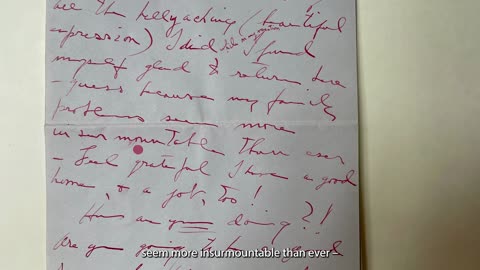 all the bellyaching (beautiful
expression) I did I found
myself glad to return here
- guess because my family
problems seem more
insurmountable than ever
- Feel grateful I have a good
home, & a job, too!
How are you doing?!
Are you going to have a good
seem more insurmountable than ever